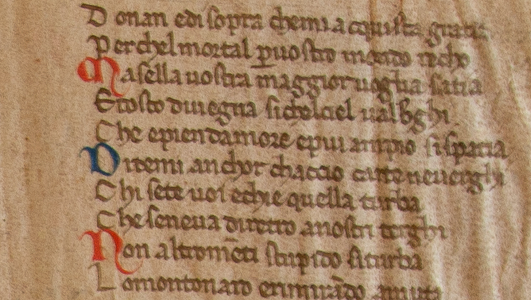 Donan edi sopra chemi acquista gratia
Perchel mortal puostro mondo recho
Ma sella uostra maggior uoglia satia
E tosto diuegna si chelciel ualbghi
Che epien damore epiu ampio si spatia
Ditemi anchor chaccio carte neuerghi
Chi sete uoi echie quella turba
Che seneua diretro a nostri terghi
Non altromẽti stupido siturba
Lomontonaro erimirãdo amuta